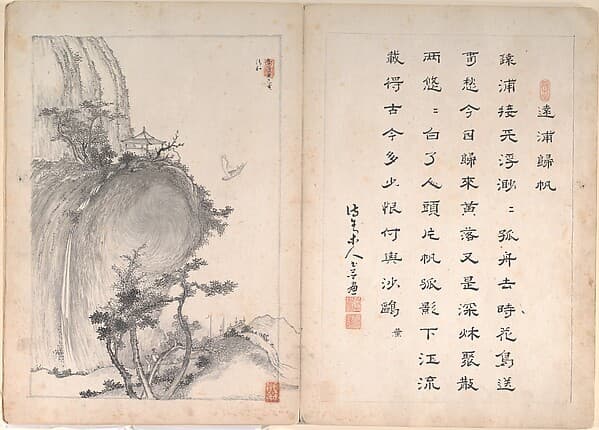 遠浦歸帆
遠浦接天浮渺〻孤舟去時花鳥送
愁今日歸來黃落又是深秋聚散
兩悠〻白了人頭片帆孤影下江流
載得古今多少恨付與沙鷗